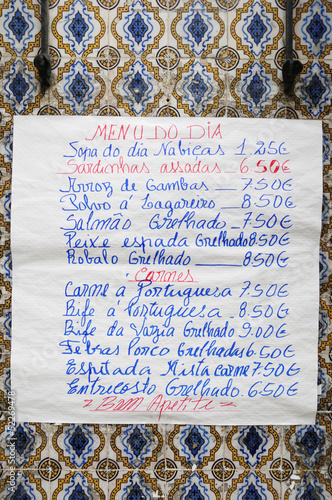 MENU DO DIA
Sopa do dia Nabiças 1.25€
Sardinhas assadas 6.50€
Arroz de Gambas 7.50€
Polvo á Lagareiro 8.50€
Salmão Grelhado 7.50€
Peixe espada Grelhado 8.50€
Robalo Grelhado 8.50€
Carnes
Carne á Portuguesa 7.50€
Bife á Portuguesa 8.50€
Bife da Vazia Grelhado 9.00€
Febras Porco Grelhadas 6.50€
Espitada Mista carne 7.50€
Entrecosto Grelhado 6.50€
Bom Apetite